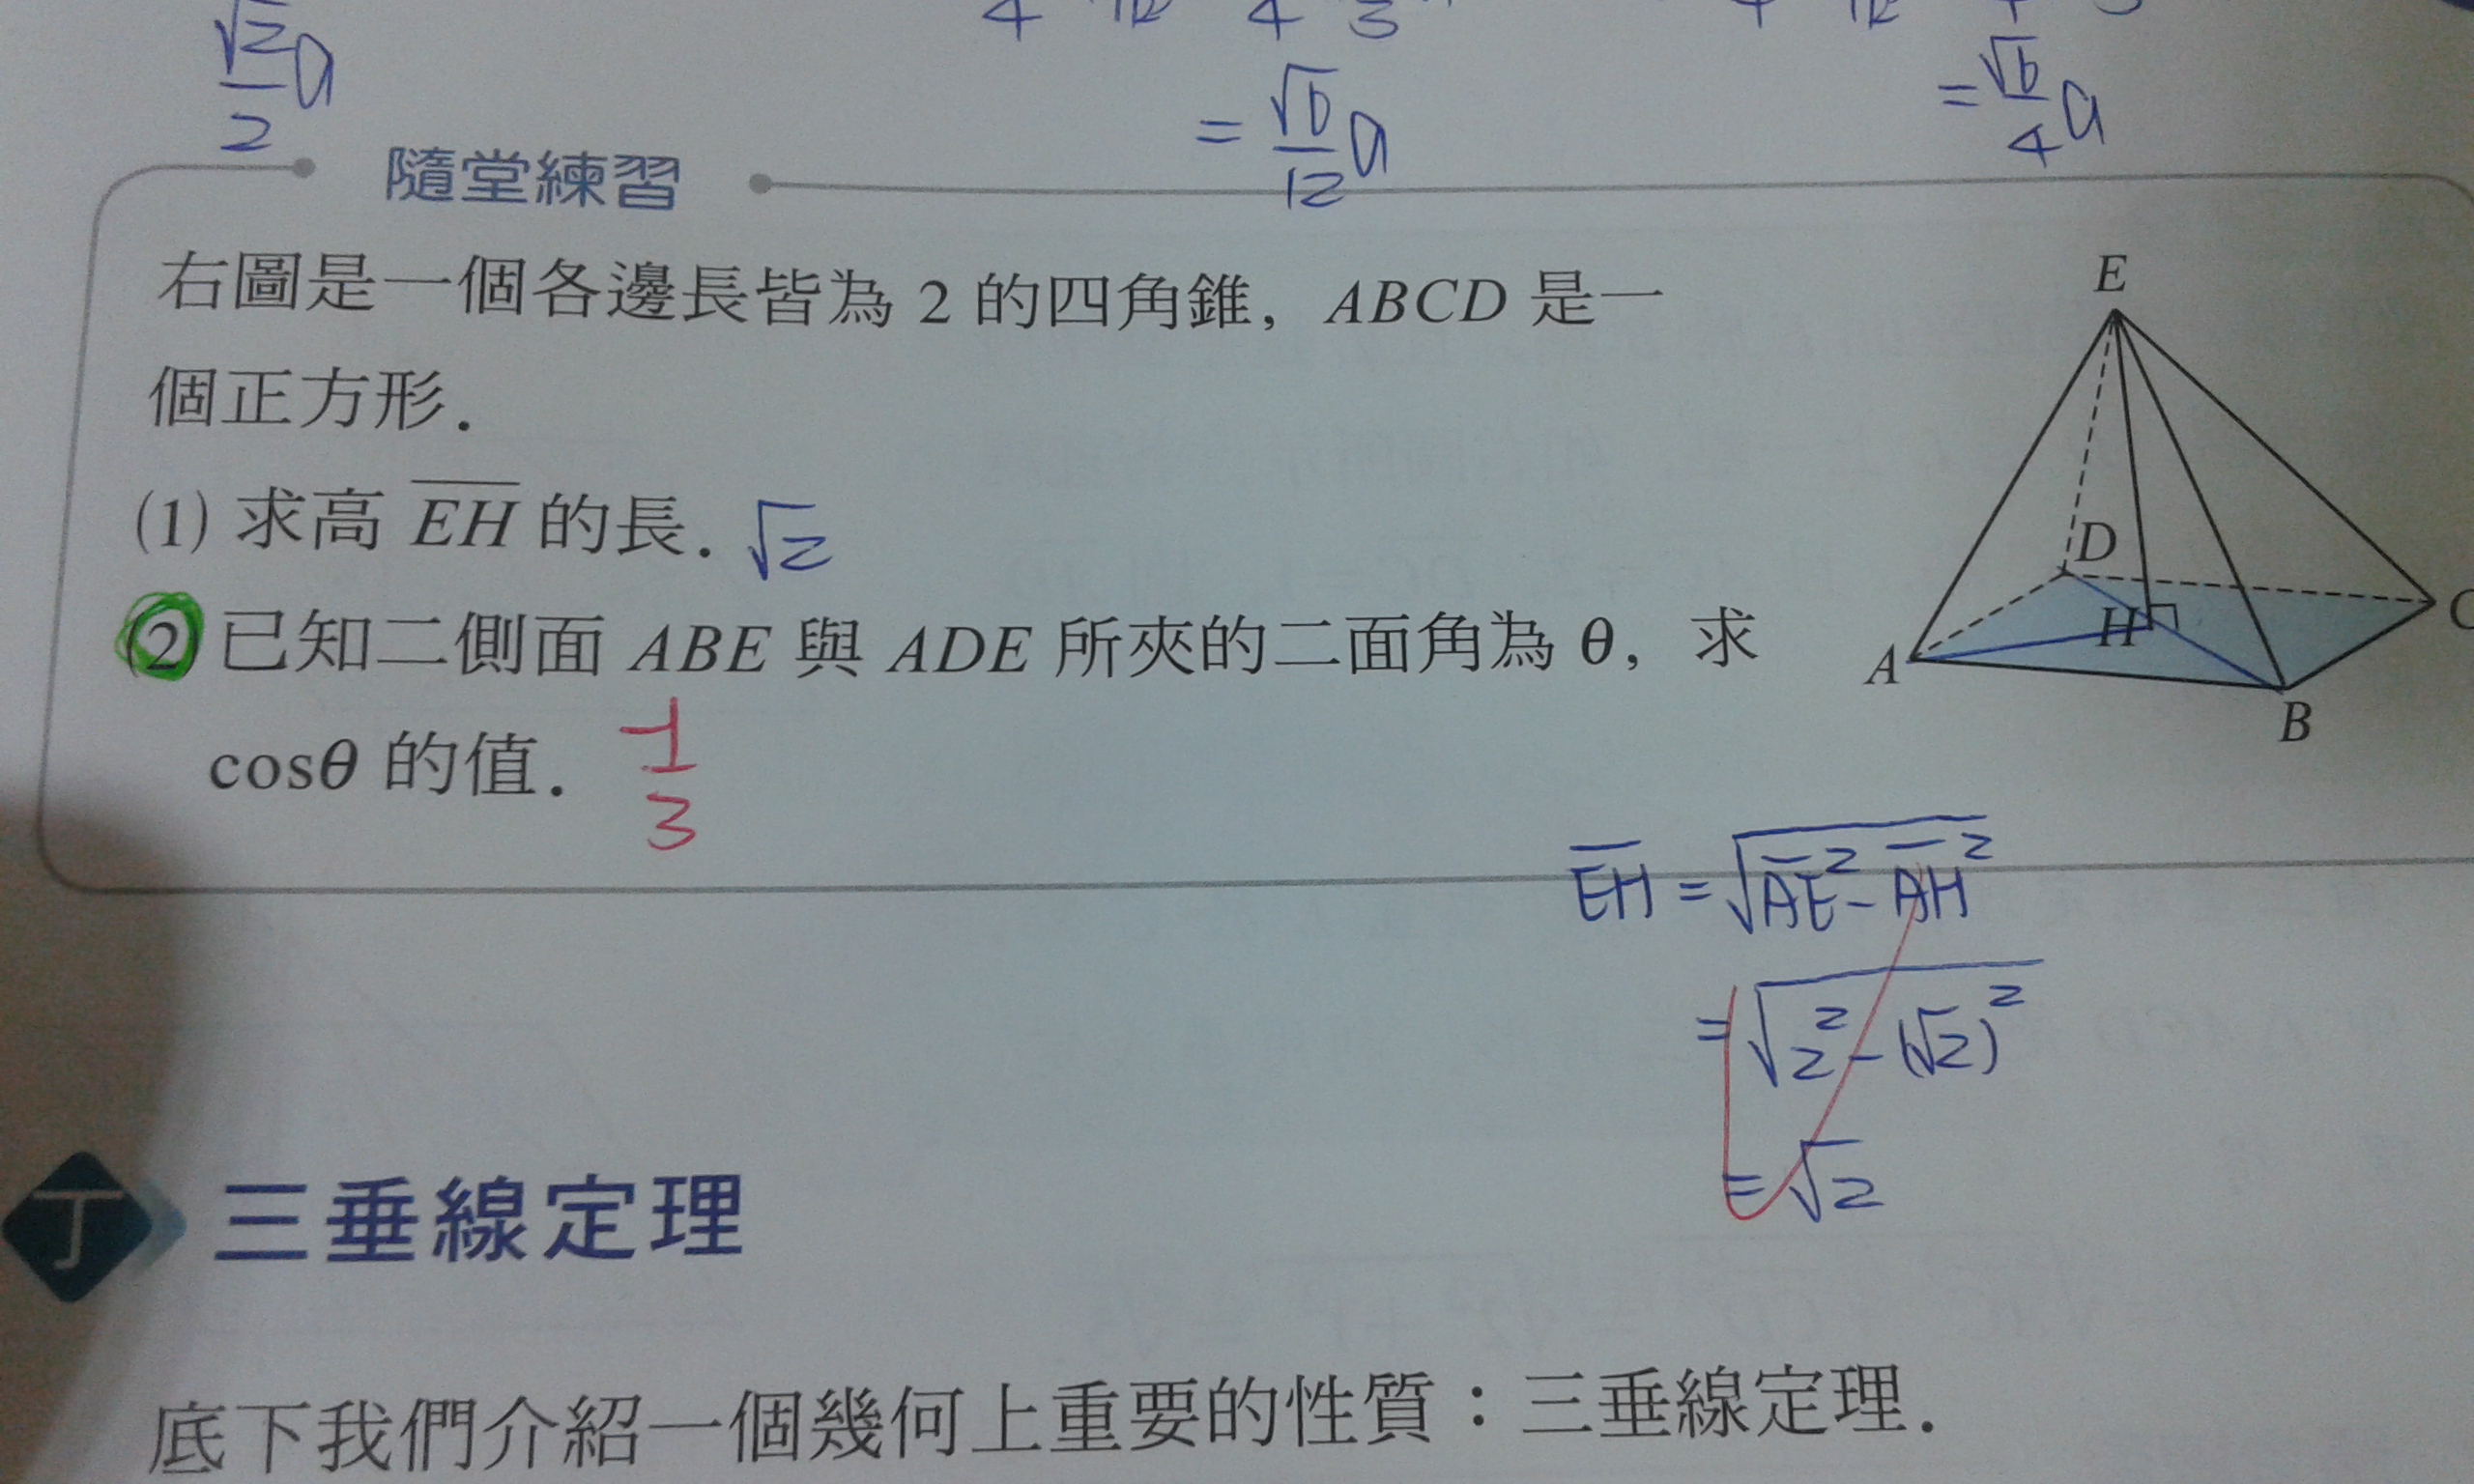 √2/2 a
= √6/12 a
= √6/4 a
隨堂練習
右圖是一個各邊長皆為 2 的四角錐, ABCD 是一
個正方形.
(1) 求高 EH 的長. √2
(2) 已知二側面 ABE 與 ADE 所夾的二面角為 θ, 求
cosθ 的值. -1/3
E
D
H
C
A
B
EH = √(AE² - AH²)
= √(2² - (√2)²)
= √2
丁 三垂線定理
底下我們介紹一個幾何上重要的性質：三垂線定理.